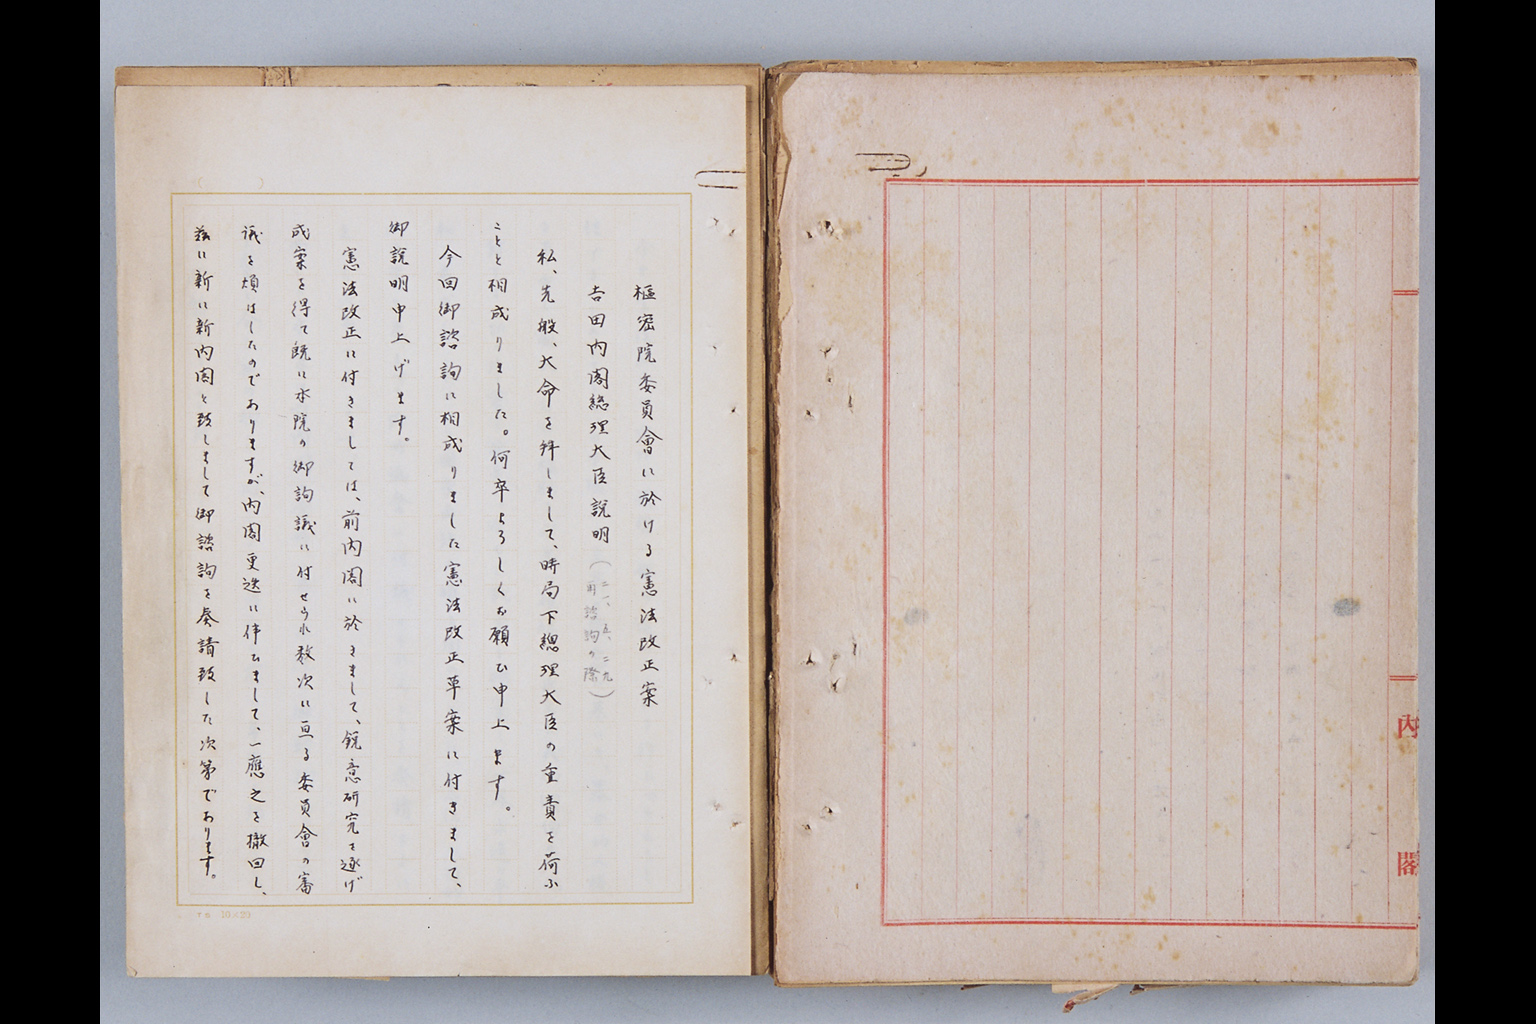 内閣
樞密院委員會に於ける憲法改正案
吉田内閣総理大臣説明（二一、五、二九
再諮詢の際）
私、先般、大命を拝しまして、時局下總理大臣の重責を荷ふ
ことと相成りました。何卒よろしくお願ひ申上ます。
今回御諮詢に相成りました憲法改正草案に付きまして、
御説明申上げます。
憲法改正に付きましては、前内閣に於きまして、鋭意研究を遂げ
成案を得て既に本院の御詢議に付せられ数次に亘る委員會の審
議を煩はしたのでありますが、内閣更迭に伴ひまして、一應之を撤回し、
茲に新に新内閣と致しまして御諮詢を奏請致した次第であります。
10×20